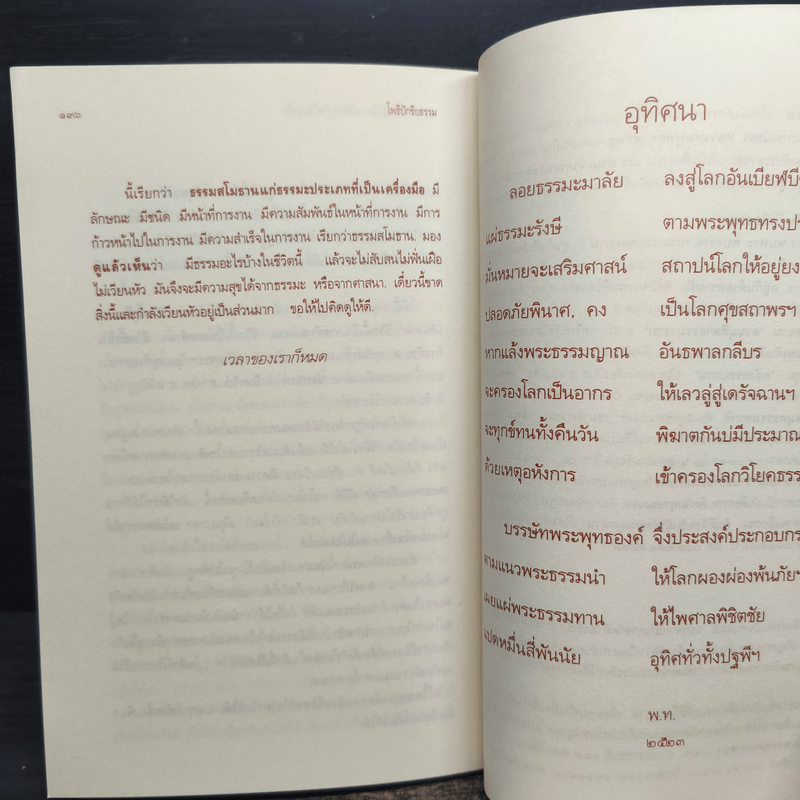 ๑๓๖
โพธิปักขิยธรรม
นี้เรียกว่า ธรรมสโมธานแก่ธรรมะประเภทที่เป็นเครื่องมือ มี
ลักษณะ มีชนิด มีหน้าที่การงาน มีความสัมพันธ์ในหน้าที่การงาน มีการ
ก้าวหน้าไปในการงาน มีความสำเร็จในการงาน เรียกว่าธรรมสโมธาน. มอง
ดูแล้วเห็นว่า มีธรรมอะไรบ้างในชีวิตนี้ แล้วจะไม่สับสนไม่ฟั่นเฝือ
ไม่เวียนหัว มันจึงจะมีความสุขได้จากธรรมะ หรือจากศาสนา. เดี๋ยวนี้ขาด
สิ่งนี้และกำลังเวียนหัวอยู่เป็นส่วนมาก ขอให้ไปคิดดูให้ดี.
เวลาของเราก็หมด
อุทิศนา
ลอยธรรมะมาลัย ลงสู่โลกอันเบียฬบี
แผ่ธรรมะรังษี ตามพระพุทธทรงประ
มั่นหมายจะเสริมศาสน์ สถาปน์โลกให้อยู่ยง
ปลอดภัยพินาศ, คง เป็นโลกศุขสถาพรฯ
หากแล้งพระธรรมญาณ อันธพาลกลีบร
จะครองโลกเป็นอากร ให้เลวลู่สู่เดรัจฉานฯ
จะทุกข์ทนทั้งคืนวัน พิฆาตกันบ่มีประมาณ
ด้วยเหตุอหังการ เข้าครองโลกวิโยคธรร
บรรษัทพระพุทธองค์ จึ่งประสงค์ประกอบกร
ตามแนวพระธรรมนำ ให้โลกผองผ่องพ้นภัยฯ
เผยแผ่พระธรรมทาน ให้ไพศาลพิชิตชัย
แปดหมื่นสี่พันนัย อุทิศทั่วทั้งปฐพีฯ
พ.ท.
๒๕๒๓